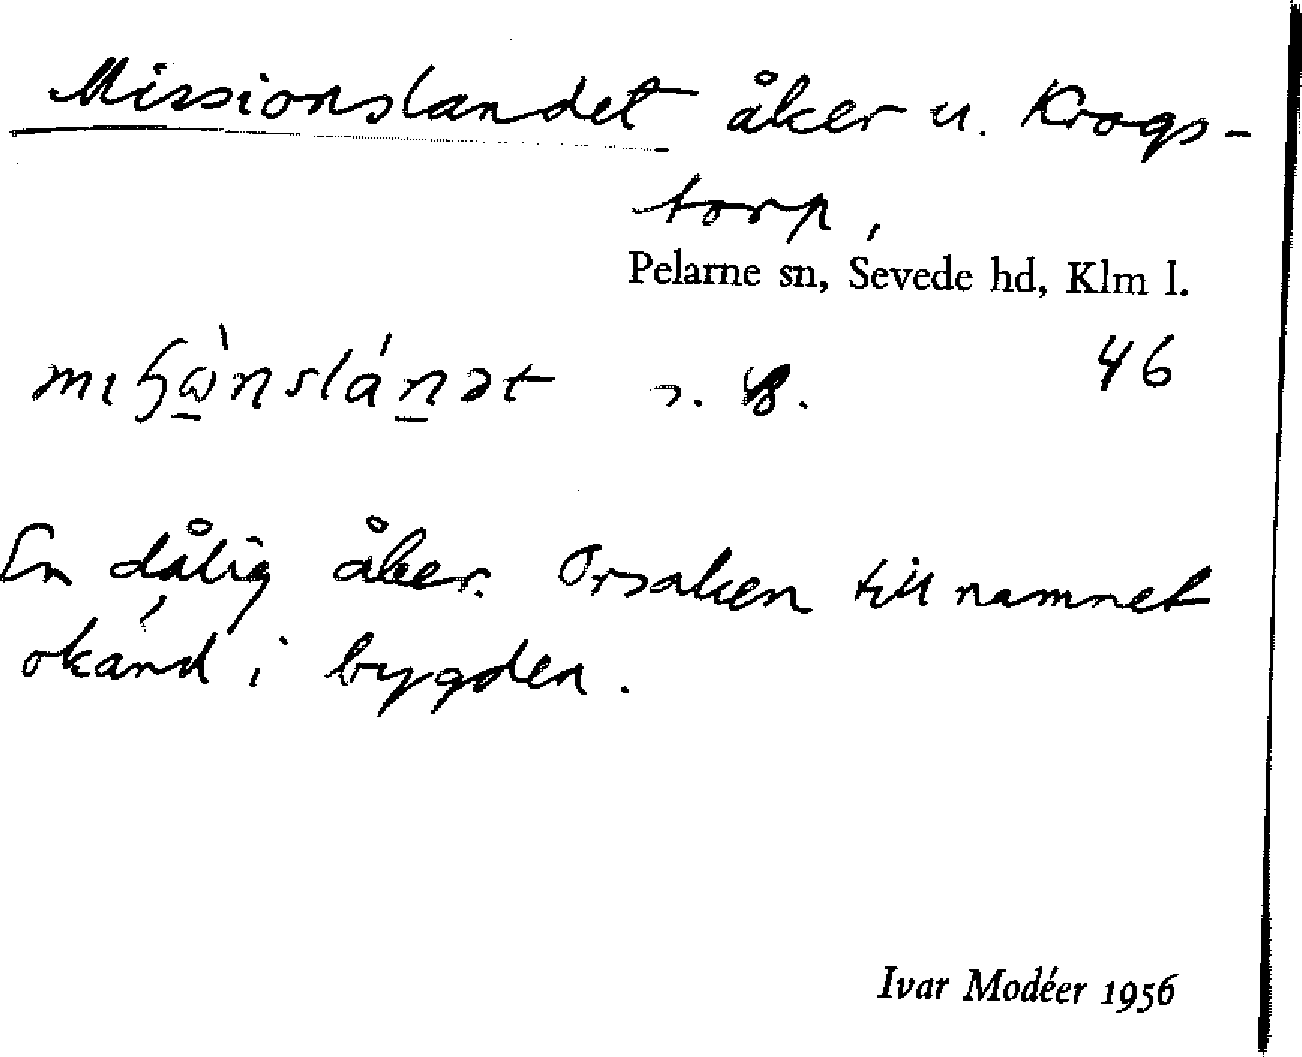 Missionslandet åker u. Krogs-
torp,
Pelarne sn, Sevede hd, Klm l.
46
En dålig åker. Orsaken till namnet
okänd i bygden.
Ivar Modéer 1956